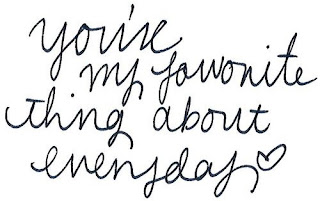 you're
my favorite
thing about
everyday♡